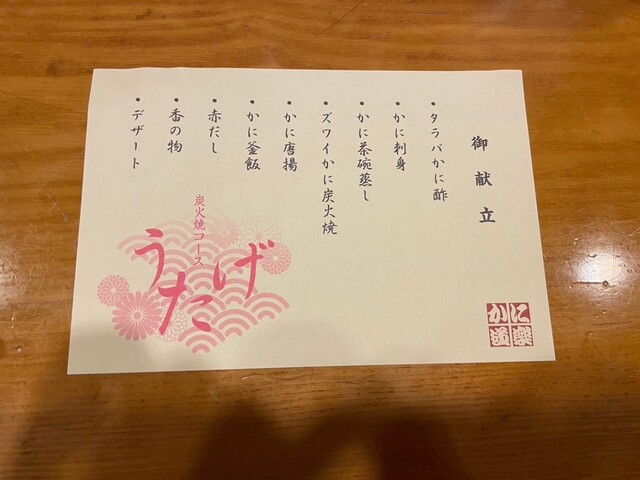 御献立
・タラバかに酢
・かに刺身
・かに茶碗蒸し
・ズワイかに炭火焼
・かに唐揚
・かに釜飯
・赤だし
・香の物
・デザート
炭火焼コース
うたげ
かに道楽